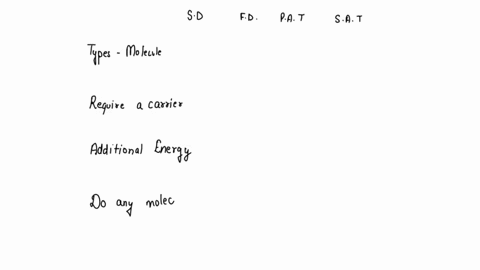 S.D F.D. P.A.T S.A.T
Types - Molecule
Require a carrier
Additional Energy
Do any molec